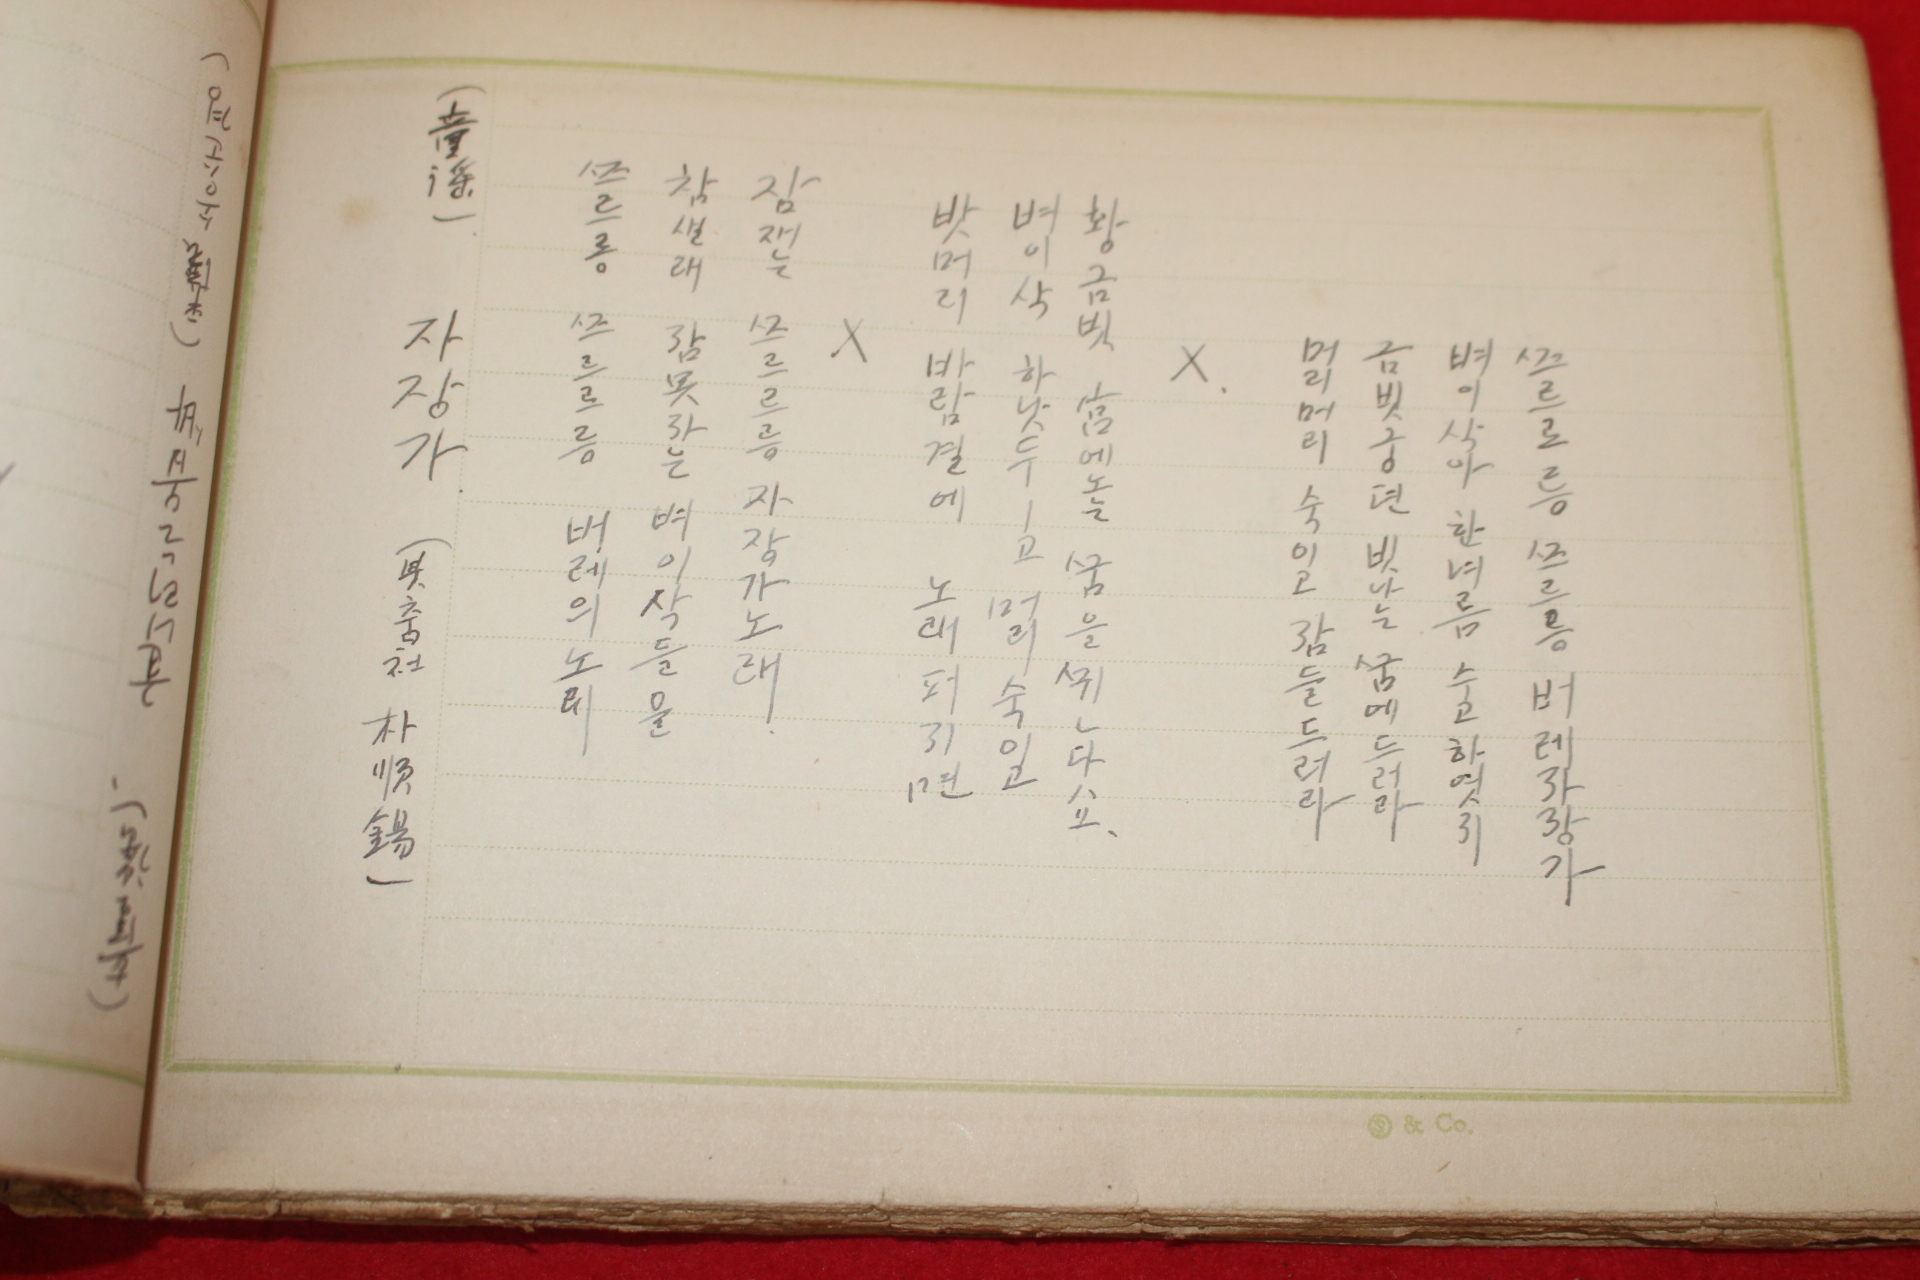 (童謠) 자장가 朴順錫)
쓰르릉 쓰르르릉 버레의노래
참새래 잠못자는 벼이삭들을
잠재는 쓰르르르릉 자장가노래.
X
밧머리 바람결에 노래퍼지면
벼이삭 하낫두ㅣ고 머리숙이고
황금빗 꿈을 뀌ㄴ다요、
X.
머리머리 숙이고 잠들드러라
금빗궁뎐 빗나는 꿈에드러라
벼이삭아 한녀름 수고하엿지
쓰르르릉 쓰르릉 버레자장가
Ⓢ & Co.